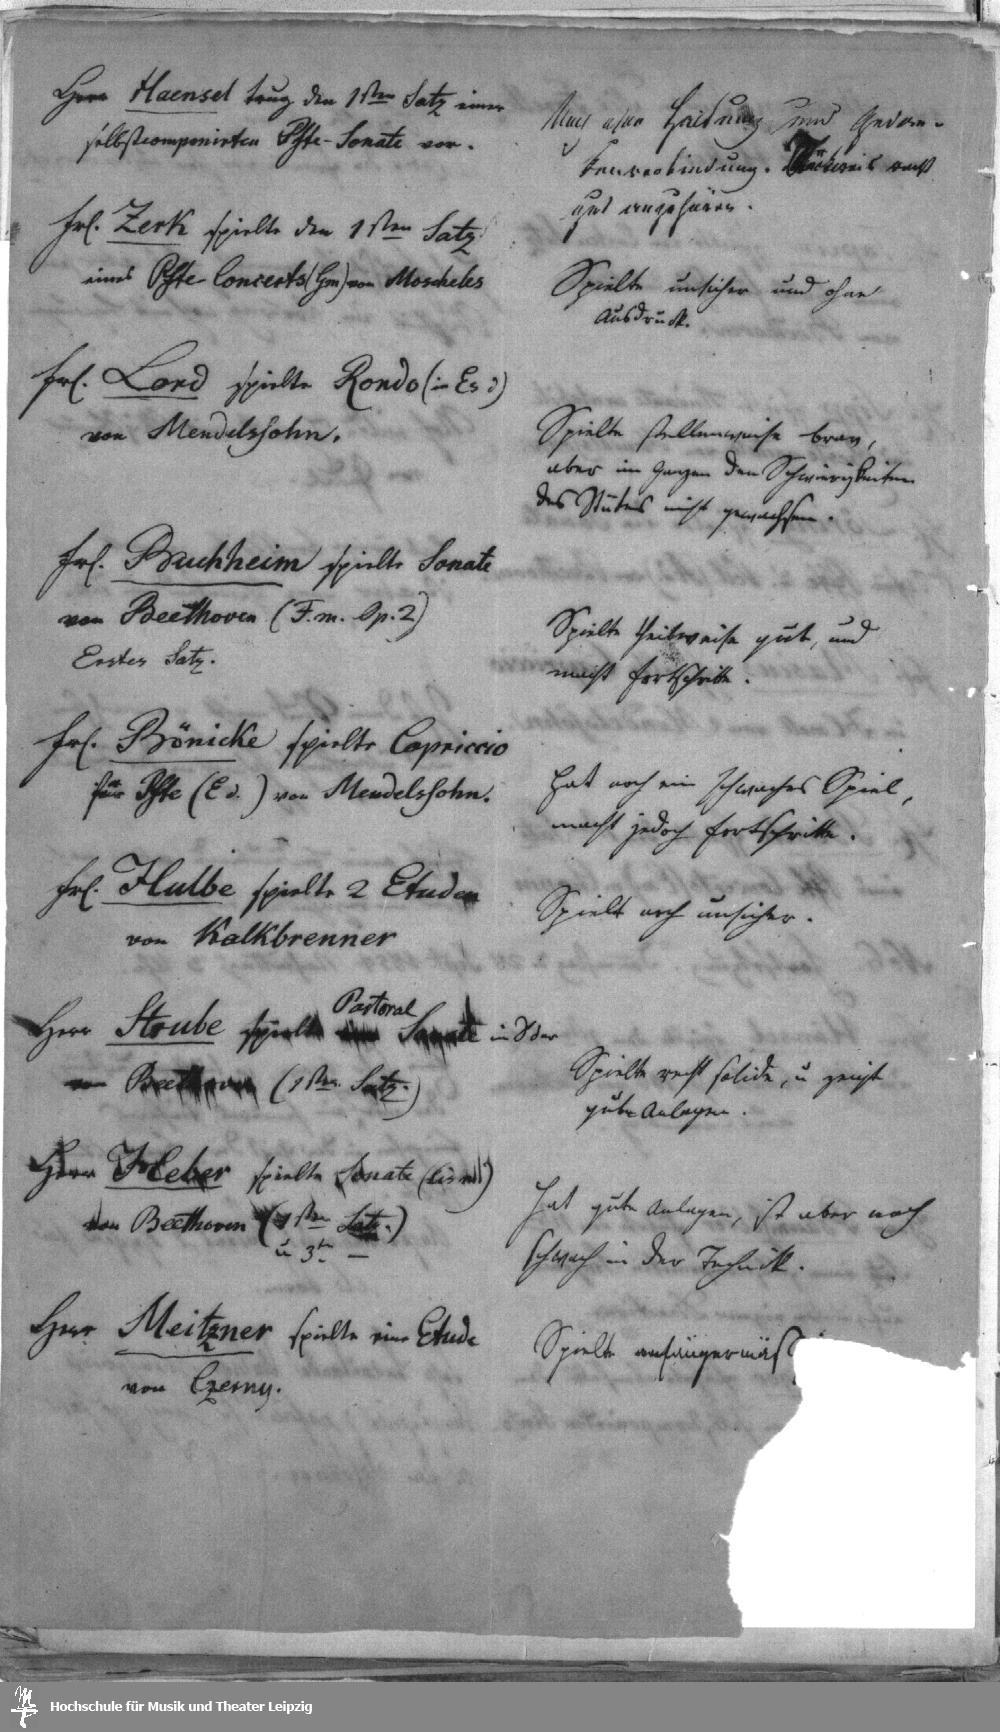 Herr Haensel trug den 1sten Satz einer
selbstcomponirten Pfte-Sonate vor.
Noch ohne Haltung und Gedan-
kenverbindung. recht
gut anzuhören.
Frl. Zerk spielte den 1sten Satz
eines Pfte Concerts (Gm) von Moscheles
Spielte unsicher und ohne
Ausdruck.
Frl. Lord spielte Rondo (in Es d)
von Mendelssohn.
Spielte stellenweise brav,
aber im Ganzen den Schwierigkeiten
des Stückes nicht gewachsen.
Frl. Buchheim spielte Sonate
von Beethoven (F.m. Op. 2)
Erster Satz.
Spielte theilweise gut, und
macht Fortschritte.
Frl. Bönicke spielte Capriccio
für Pfte (E d.) von Mendelssohn.
Hat noch ein schwaches Spiel,
macht jedoch Fortschritte.
Frl. Hulbe spielte 2 Etuden
von Kalkbrenner
Spielt noch unsicher.
Herr Strube spielte Pastoral Sonate in D dur
von Beethoven (1ster Satz.)
Spielte recht solide, u zeigt
gute Anlagen.
Herr Heber spielte Sonate (Cis moll)
von Beethoven (1ster Satz.)
u 3ter —
Hat gute Anlagen, ist aber noch
schwach in der Technik.
Herr Meitzner spielte eine Etude
von Czerny.
Spielte
Hochschule für Musik und Theater Leipzig